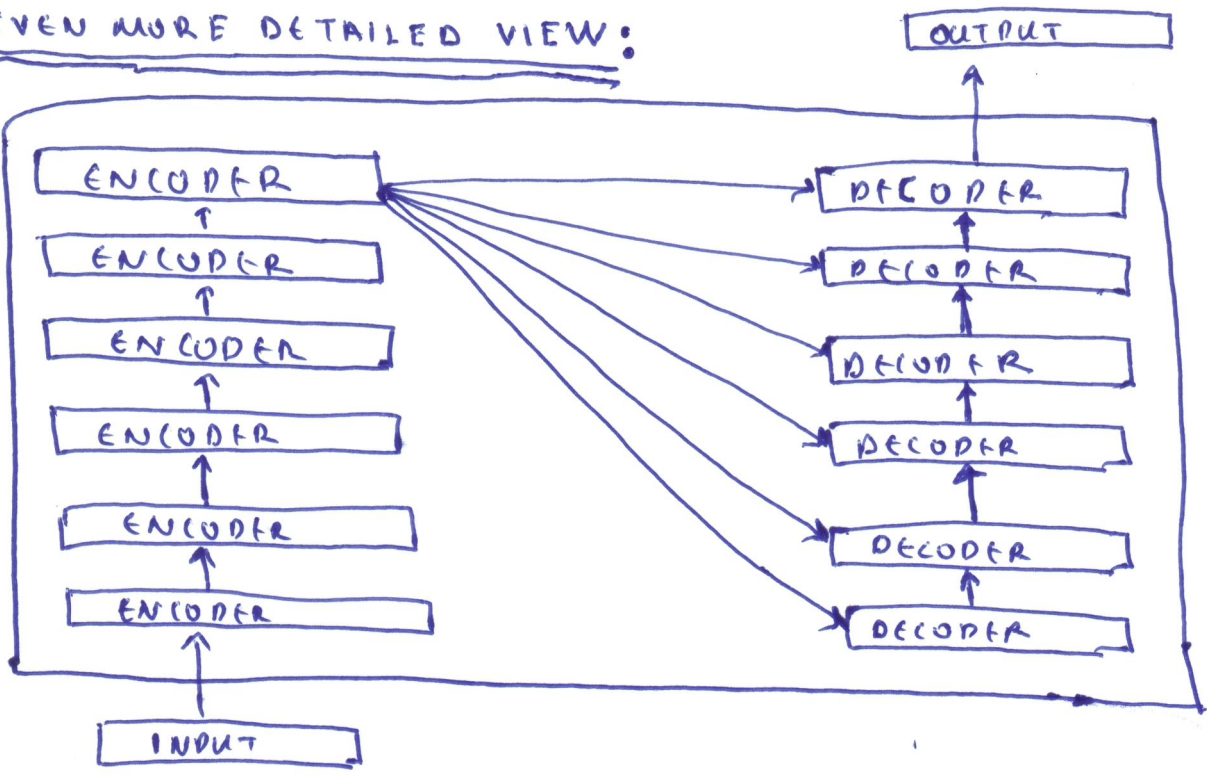 VEN MORE DETAILED VIEW:
OUTPUT
ENCODER
ENCODER
ENCODER
ENCODER
ENCODER
ENCODER
INPUT
DECODER
DECODER
DECODER
DECODER
DECODER
DECODER